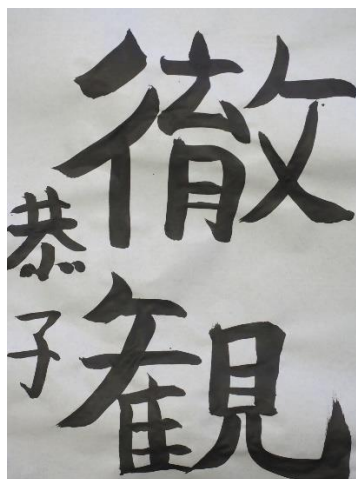 徹観
恭子